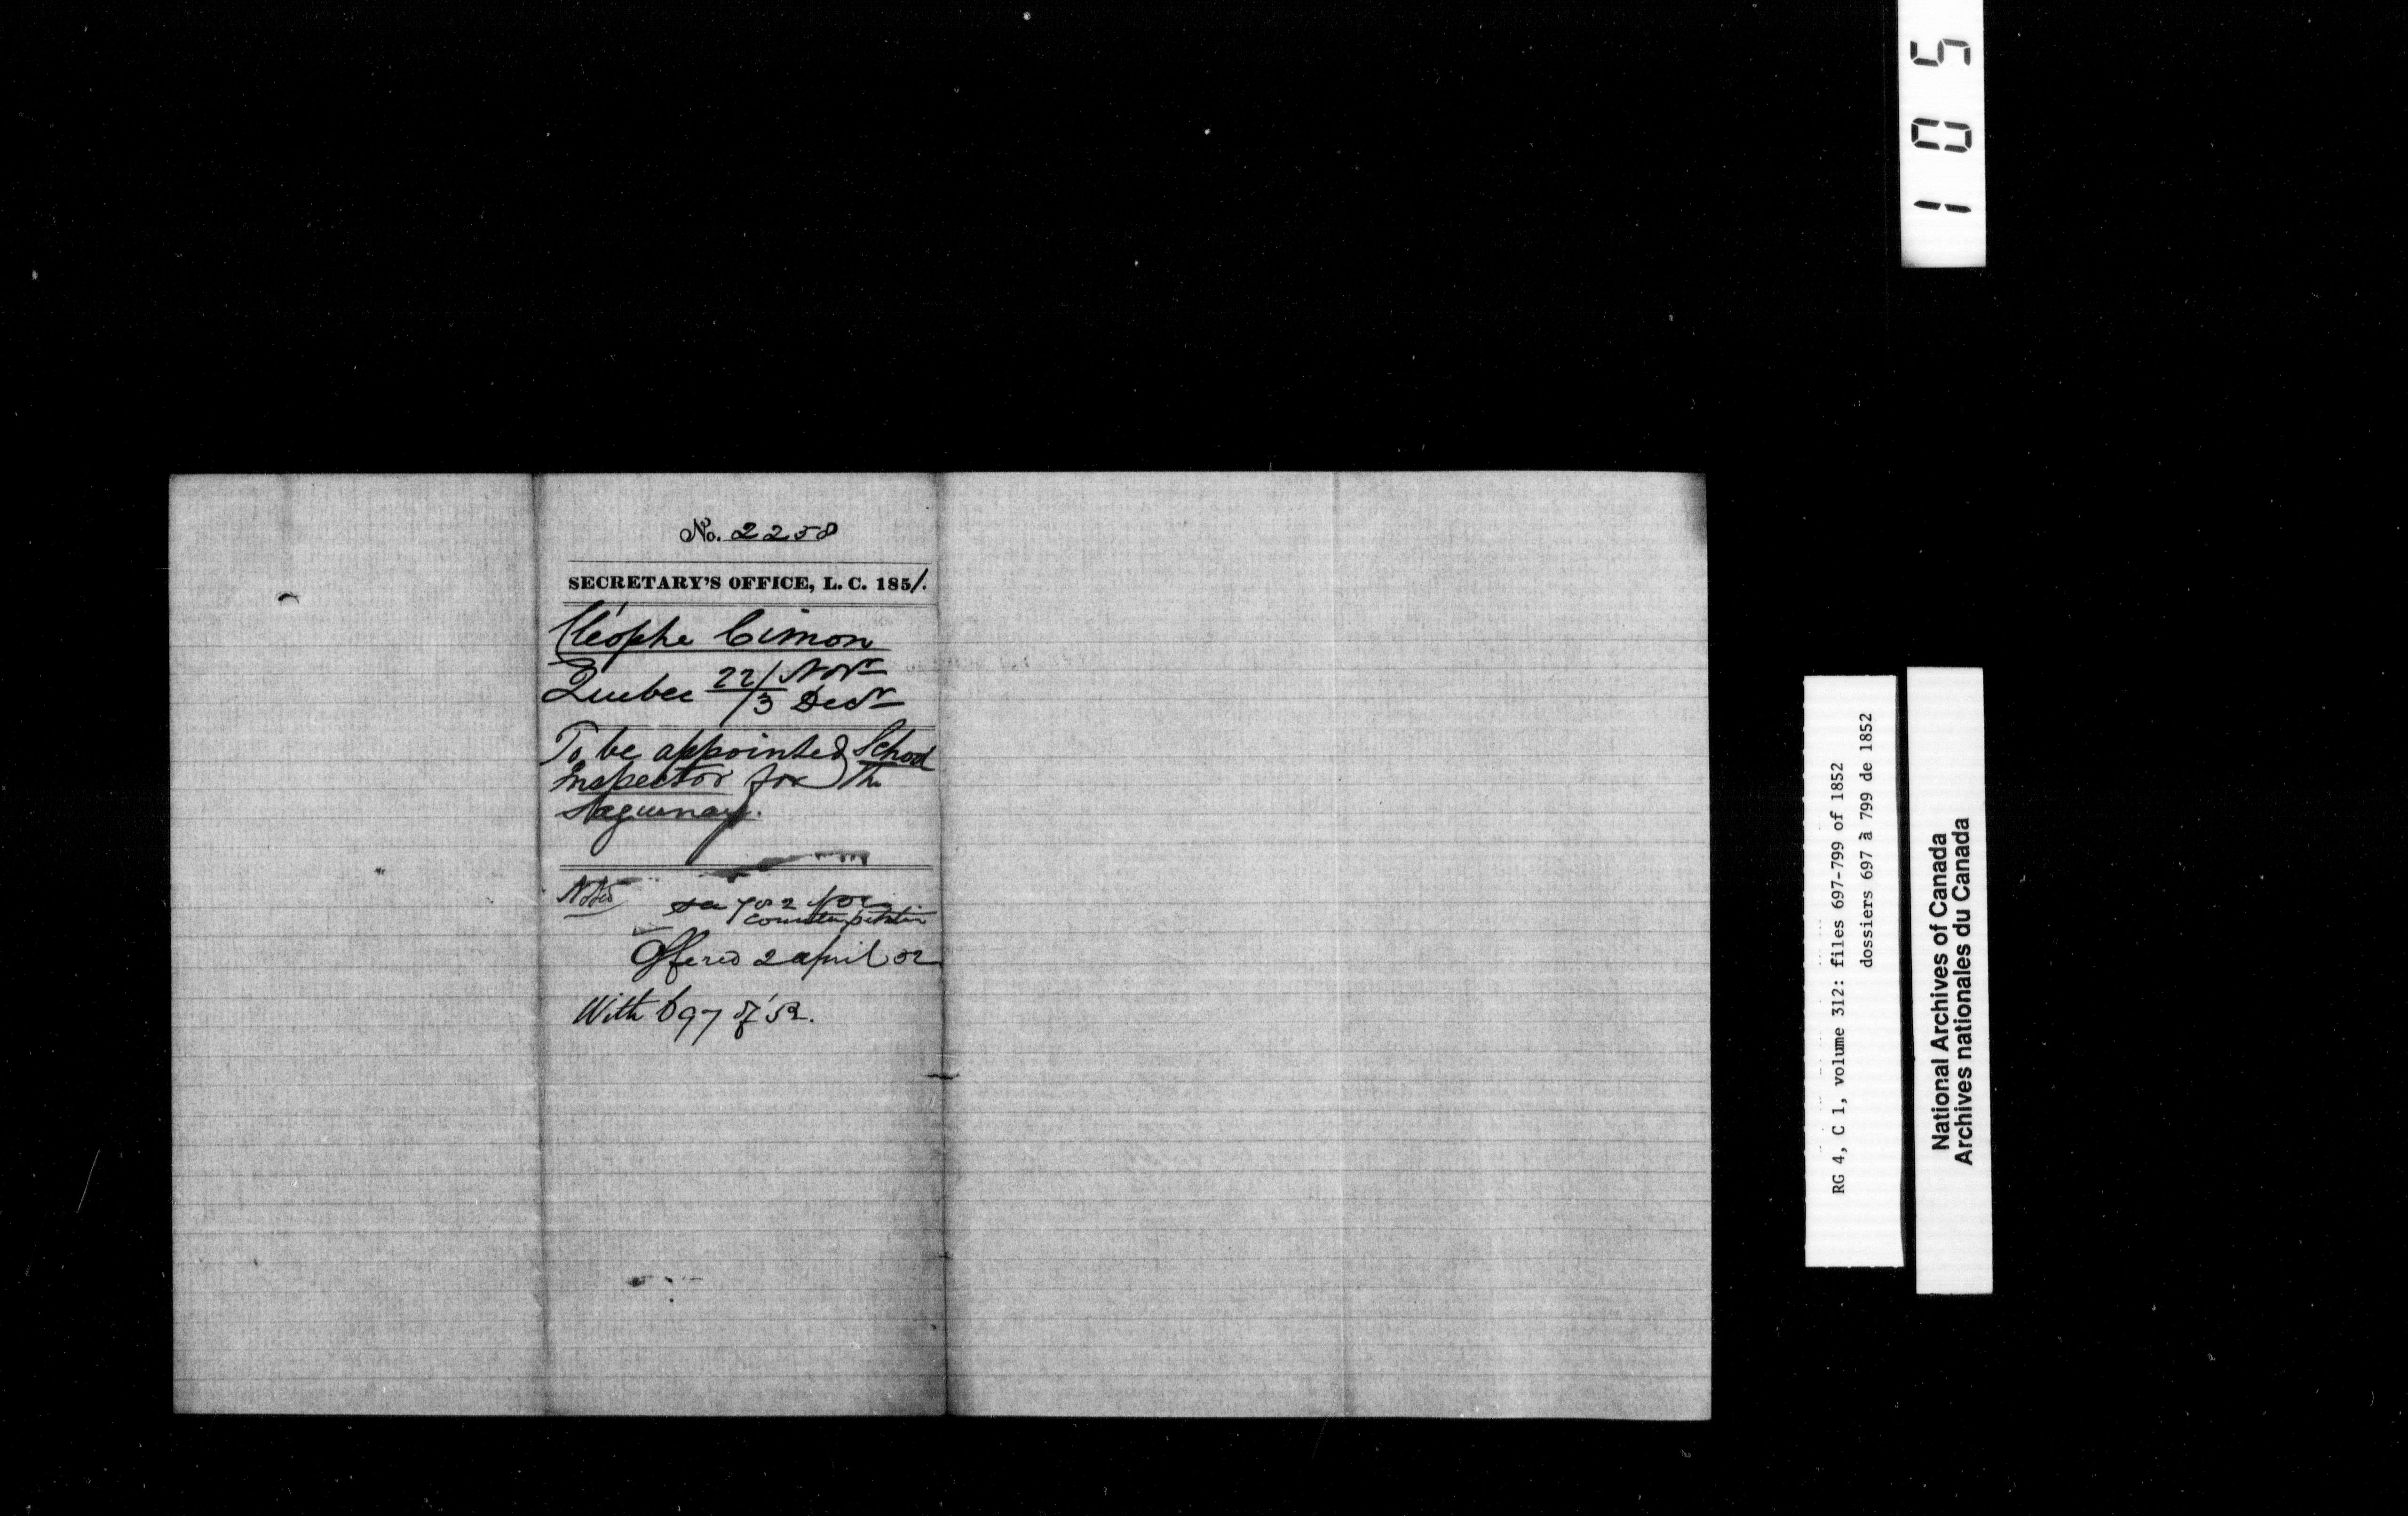 No. 2258
SECRETARY'S OFFICE, L. C. 1851.
Cléophe Cimon
Quebec 22/ Novr
/3 Decr
To be appointed School
Inspector for the
Saguenay.
Noted
for
counter petition
Offered 2 april 52
With 697 of '52.
105
RG 4, C 1, volume 312: files 697-799 of 1852
dossiers 697 à 799 de 1852
National Archives of Canada
Archives nationales du Canada